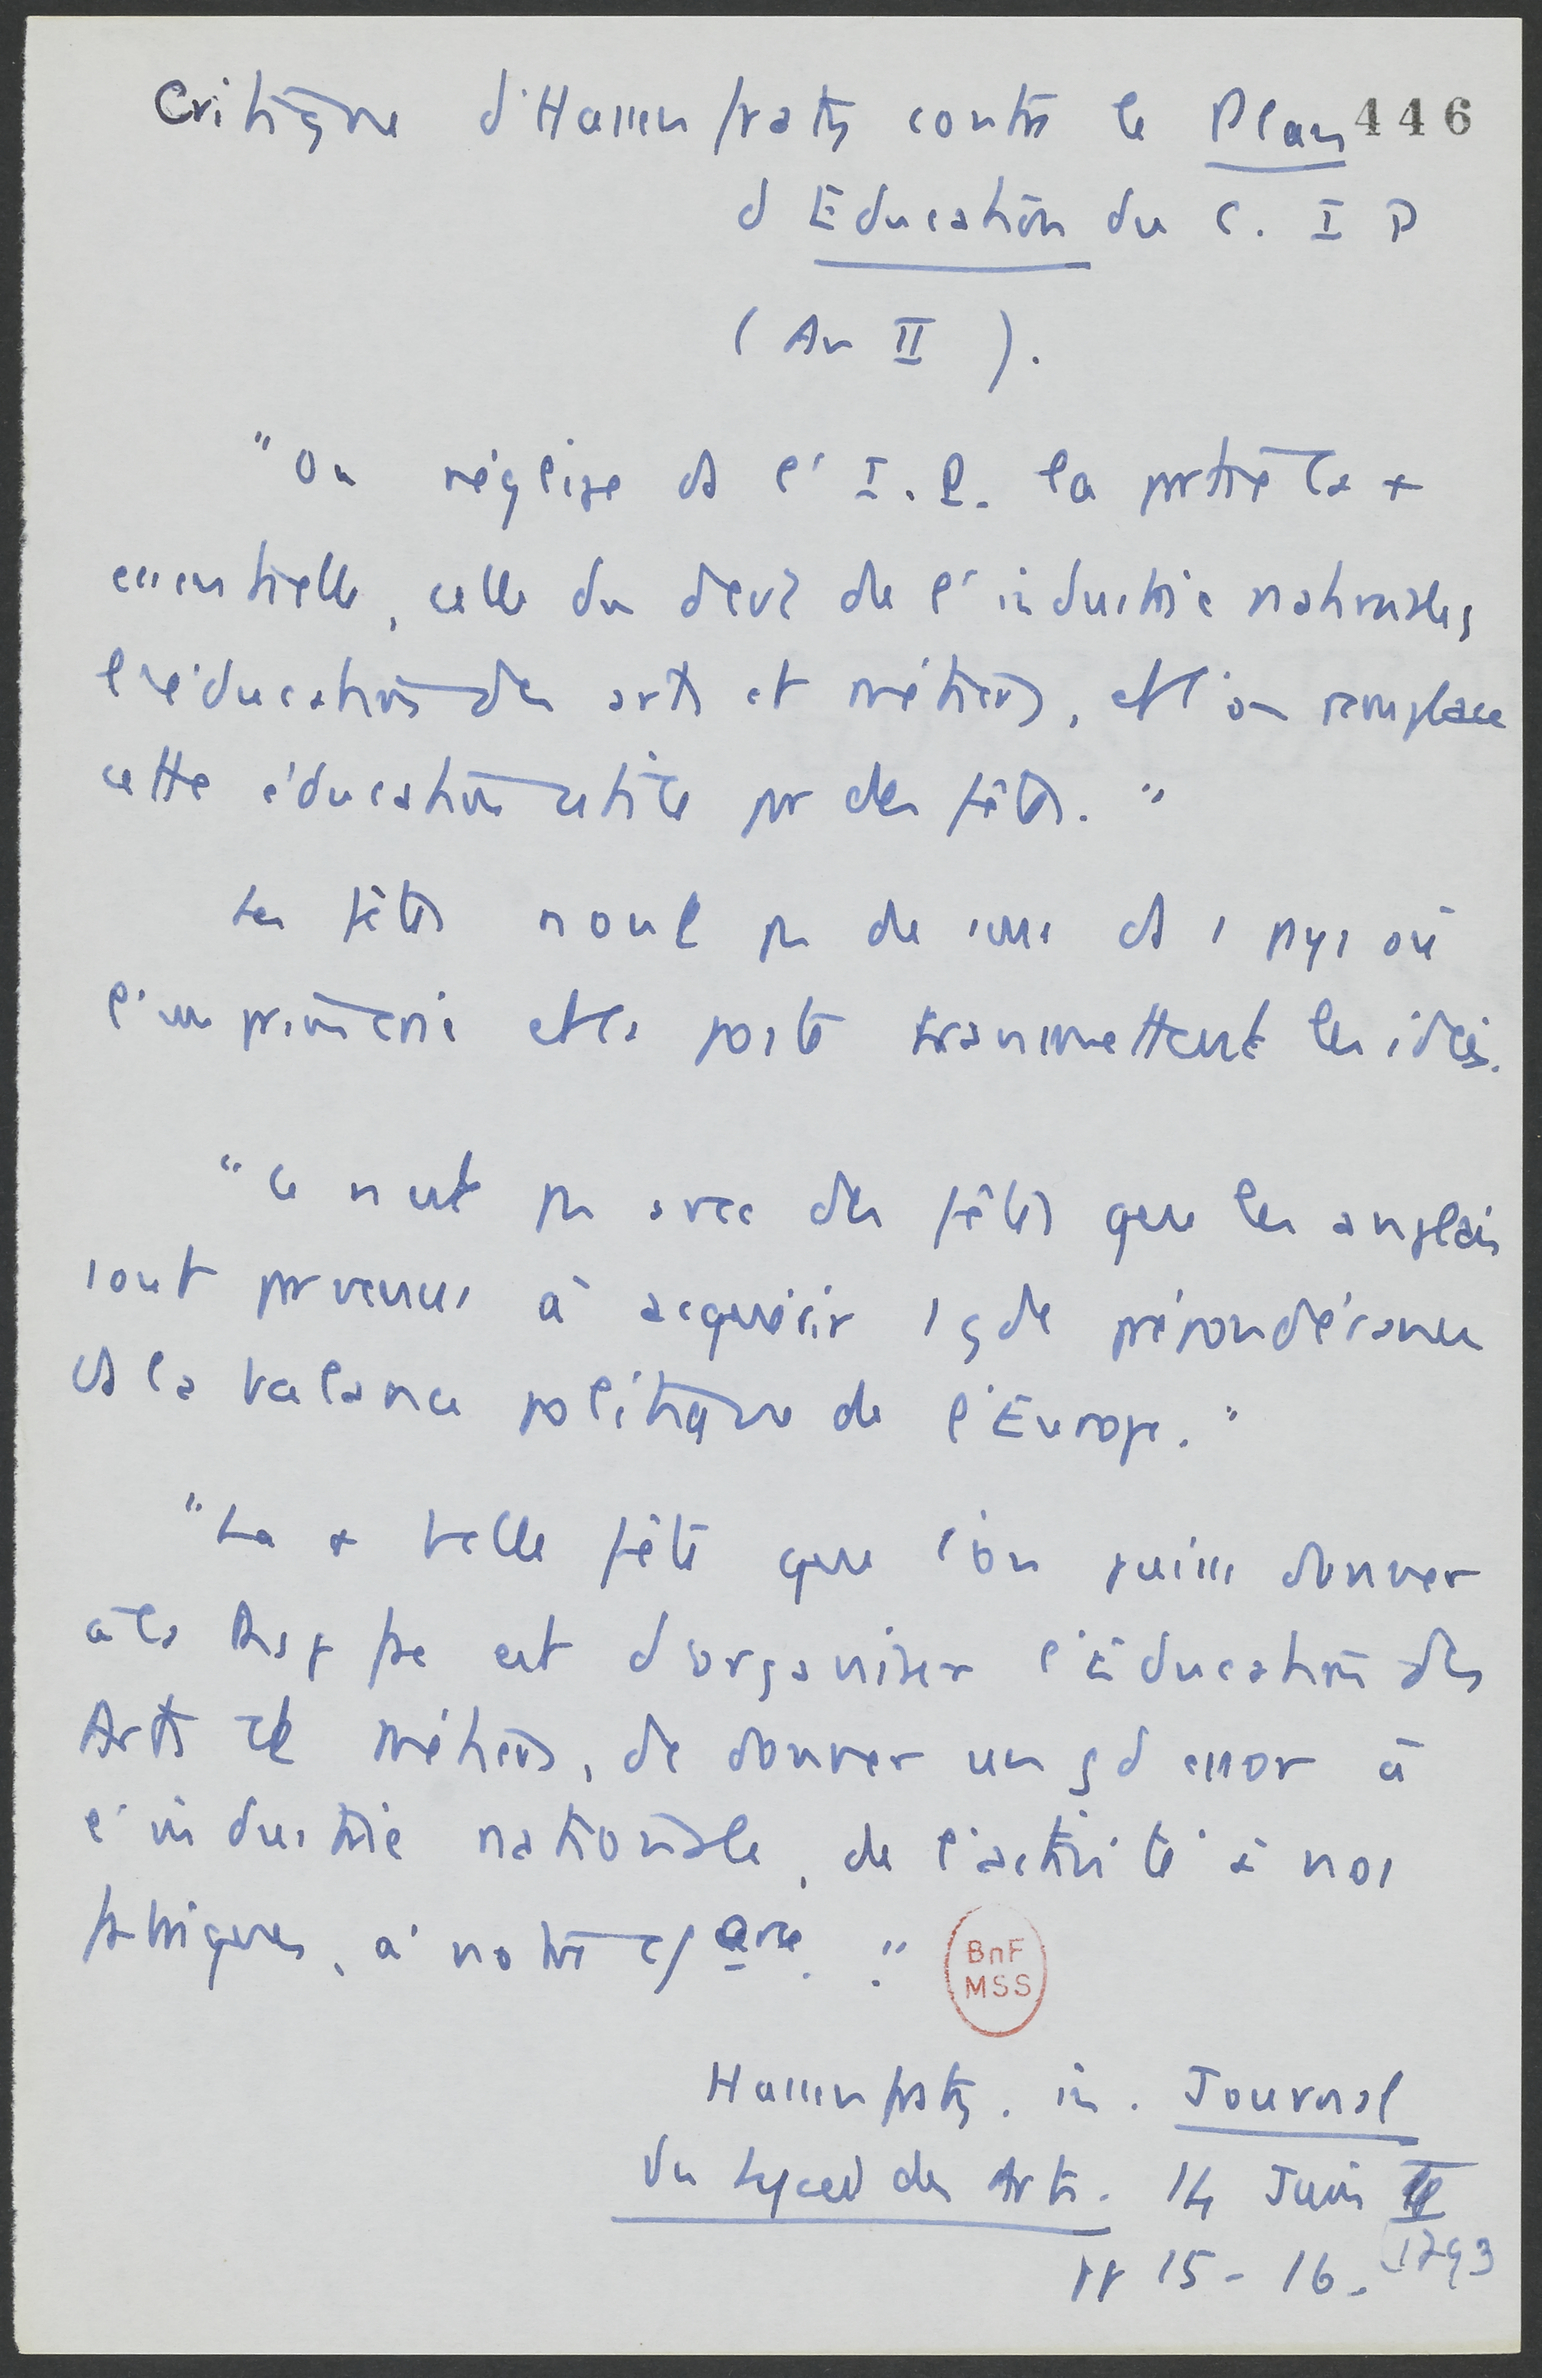 Critique d'Hassenfratz contre le Plan 446
d'Education du C. I P
(An II).
"On néglige ds l'I. P. la partie la +
essentielle, celle du devt de l'industrie nationale,
l'éducation des arts et métiers, et l'on remplace
cette éducation utile par des fêtes."
Les fêtes n'ont pas de sens ds 1 pays où
l'imprimerie et la poste transmettent les idées.
"Ce n'est pas avec des fêtes que les anglais
sont parvenus à acquérir 1 gde prépondérance
ds la balance politique de l'Europe."
"La + belle fête que l'on puisse donner
à la Rép fse est d'organiser l'Education des
Arts et métiers, de donner un gd essor à
l'industrie nationale, de l'activité à nos
fabriques, à notre
."
BnF
MSS
Hassenfratz. in. Journal
du Lycée des Arts. 14 Juin
1793
pp 15-16.